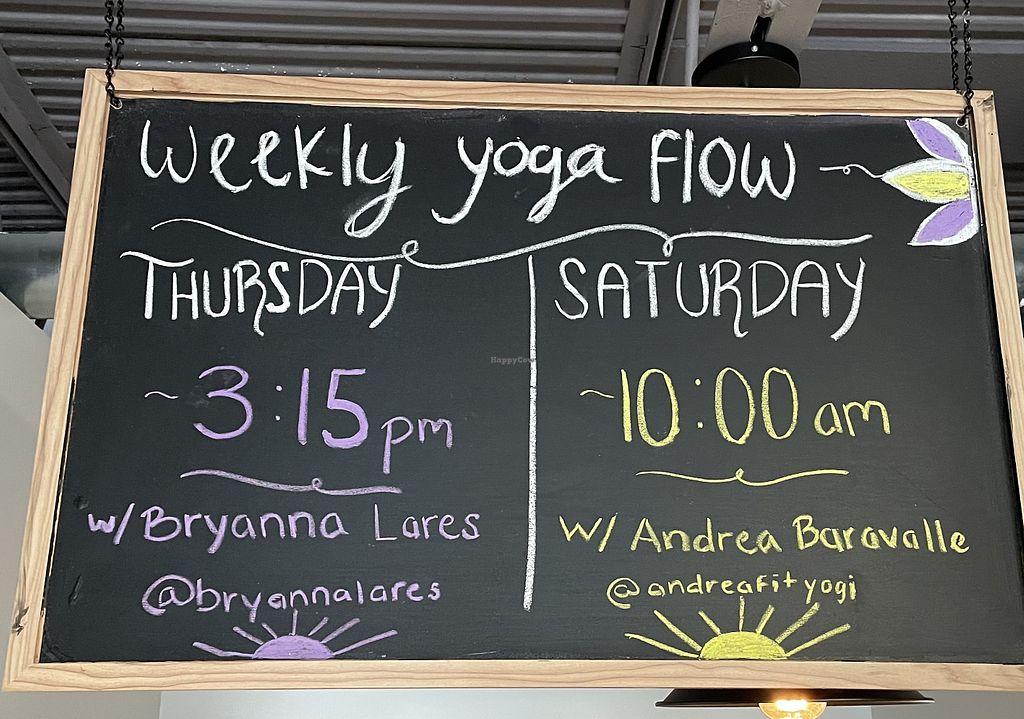 Weekly yoga flow
THURSDAY
~3:15 pm
w/ Bryanna Lares
@bryannalares
SATURDAY
~10:00 am
w/ Andrea Baravalle
@andreafityogi
HappyCow